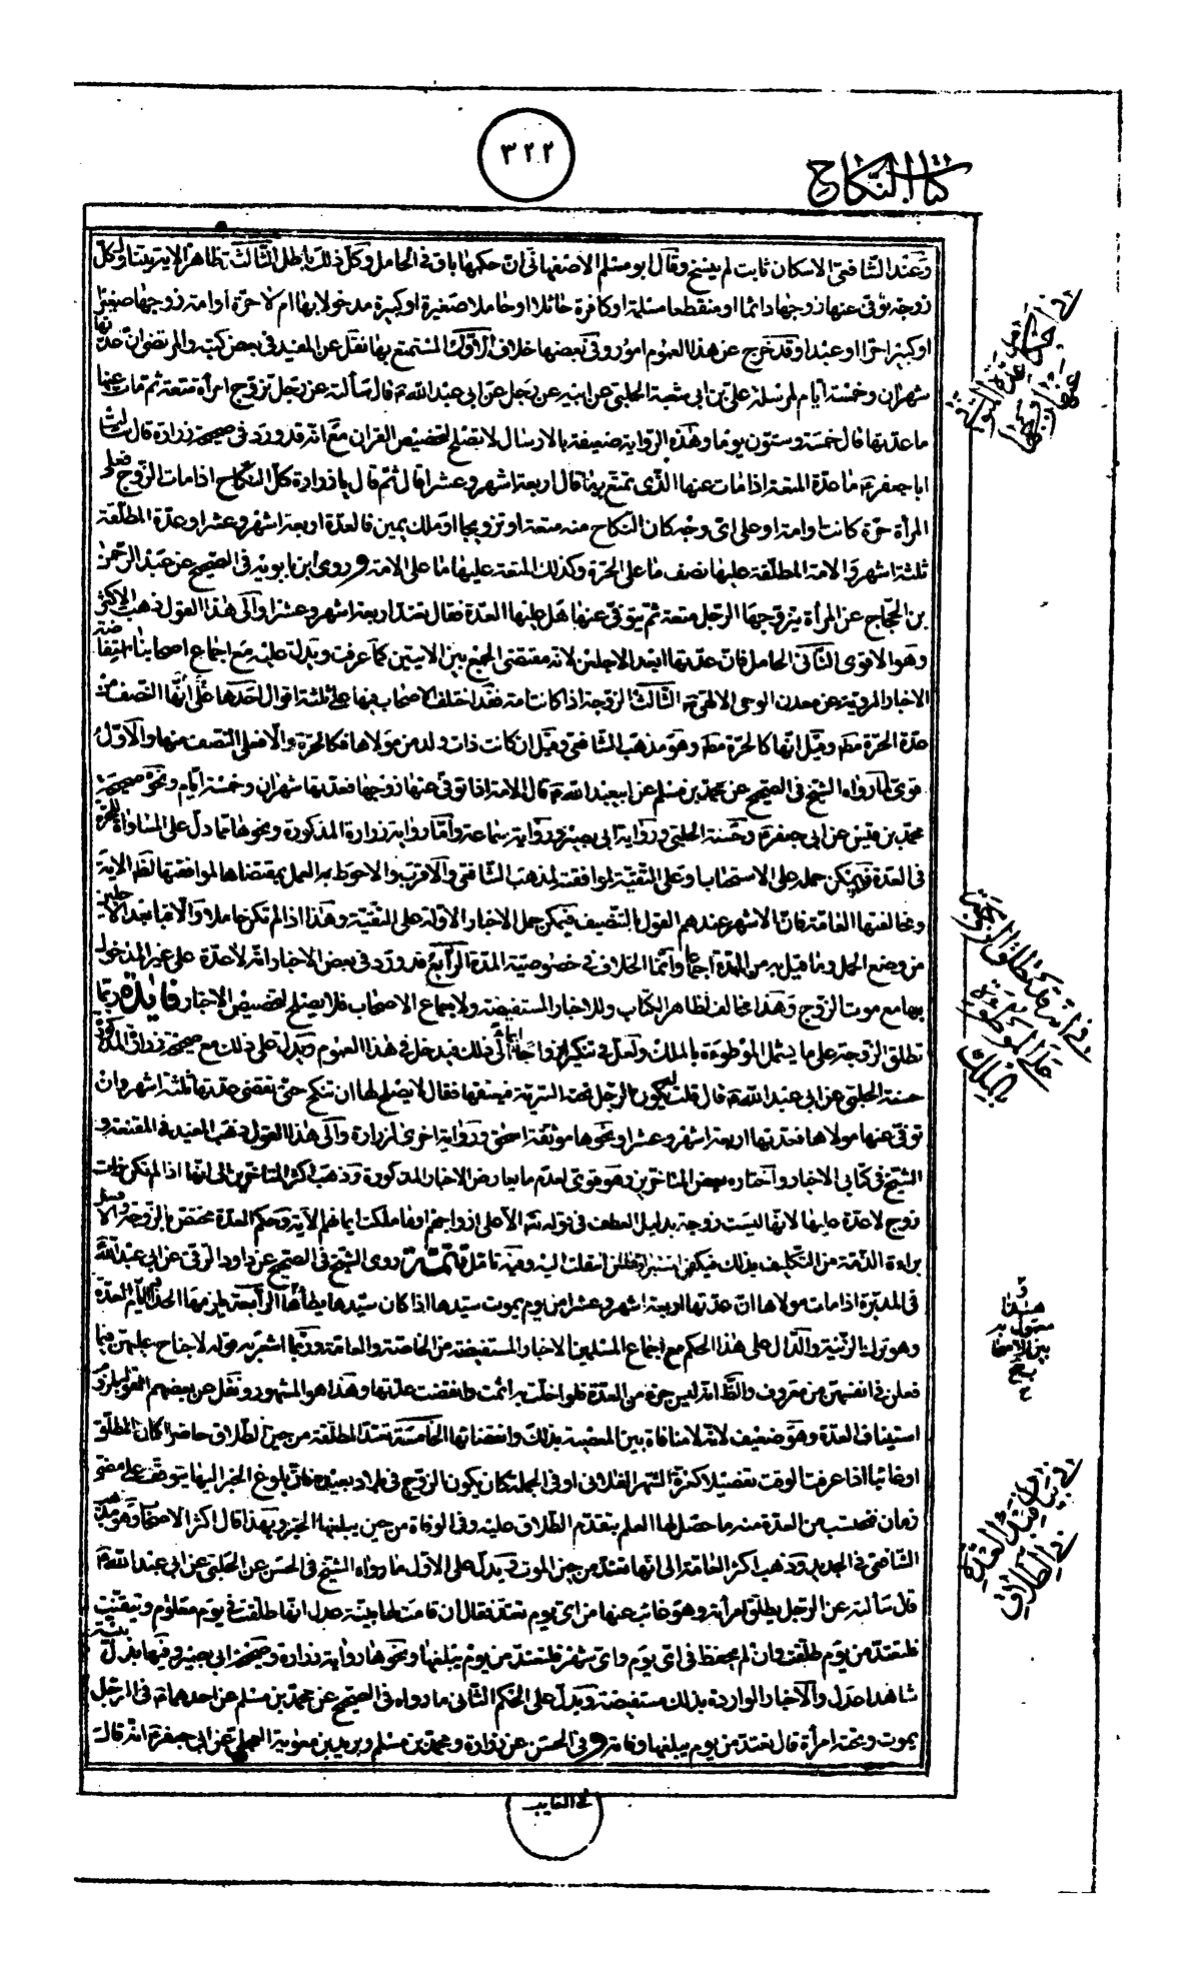 ٣٢٢
كتاب النكاح
وعند الشافعى الاسكان ثابت لم ينسخ وقال ابو مسلم الاصفهانى ان حكمها باق فى الحامل وكل ذلك باطل الثالثة ظاهر الاية يتناول كل
زوجة توفى عنها زوجها دائما او منقطعا مسلمة او كافرة حائلا او حاملا صغيرة او كبيرة مدخولا بها ام لا حرة او امة زوجها صغيرا
او كبيرا حرا او عبدا وقد خرج عن هذا العموم امور وفى بعضها خلاف الاول المستمتع بها نقل عن المفيد فى بعض كتبه والمرتضى ان عدتها
شهران وخمسة ايام لمرسلة على بن ابى شعبة الحلبى عن ابيه عن رجل عن ابى عبد الله ع قال سألته عن رجل تزوج امرأة متعة ثم مات عنها
ما عدتها قال خمسة وستون يوما وهذه الرواية ضعيفة بالارسال لا تصلح لتخصيص القران مع انه قد ورد فى صحيحة زرارة قال سالت
ابا جعفر ع ما عدة المتعة اذا مات عنها الذى تمتع بها قال اربعة اشهر وعشرا قال ثم قال يا زرارة كل النكاح اذا مات الزوج فعلى
المرأة حرة كانت او امة او على اى وجه كان النكاح منه متعة او تزويجا او ملك يمين فالعدة اربعة اشهر وعشرا وعدة المطلقة
ثلثة اشهر والامة المطلقة عليها نصف ما على الحرة وكذلك المتعة عليها ما على الامة وروى ابن بابويه فى الصحيح عن عبد الرحمن
بن الحجاج عن المرأة يتزوجها الرجل متعة ثم يتوفى عنها هل عليها العدة فقال تعتد اربعة اشهر وعشرا والى هذا القول ذهب الاكثر
وهو الاقوى الثانى الحامل فان عدتها ابعد الاجلين لانه مقتضى الجمع بين الايتين كما عرفت ويدل عليه مع اجماع اصحابنا استفاضة
الاخبار المروية عن معدن الوحى الالهى الثالث الزوجة اذا كانت امة فقد اختلف الاصحاب فيها على ثلثة اقوال احدها على انها النصف من
عدة الحرة مطلقا وقيل انها كالحرة مطلقا وهو مذهب الشافعى وقيل ان كانت ذات ولد من مولاها فكالحرة والا فعلى النصف منها والاول
قوى لما رواه الشيخ فى الصحيح عن محمد بن مسلم عن ابيعبد الله ع قال الامة اذا توفى عنها زوجها فعدتها شهران وخمسة ايام ونحوه صحيحة
محمد بن قيس عن ابى جعفر ع وحسنة الحلبى ورواية ابى بصير ورواية سماعة واما رواية زرارة المذكورة ونحوها مما دل على المساواة للحرة
فى العدة فيمكن حمله على الاستحباب وعلى التقية لموافقته لمذهب الشافعى والاقرب والاحوط به العمل بمقتضاها لموافقتها لظاهر الاية
ومخالفتها العامة فان الاشهر عندهم القول بالتنصيف فيمكن حمل الاخبار الاولة على التقية وهذا اذا لم تكن حاملا والا فبابعد الاجلين
من وضع الحمل وما قيل به من المدة اجماعا وانما الخلاف فى خصوصية المدة الرابع قد ورد فى بعض الاخبار انه لا عدة على غير المدخول
بها مع موت الزوج وهذا مخالف لظاهر الكتاب وللاخبار المستفيضة ولاجماع الاصحاب فلا يصلح لتخصيص الاخبار فائدة ربما
تطلق الزوجة على ما يشمل الموطوءة بالملك ولعل فى تنكير ازواجا ايماء الى ذلك فيدخل فى هذا العموم ويدل على ذلك مع صحيحة زرارة المذكورة
حسنة الحلبى عن ابى عبد الله ع قال قلت يكون الرجل تحته السرية فيعتقها فقال لا يصلح لها ان تنكح حتى تنقضى عدتها ثلثة اشهر وان
توفى عنها مولاها فعدتها اربعة اشهر وعشرا ونحوها موثقة اسحق ورواية اخرى لزرارة والى هذا القول ذهب المفيد فى المقنعة و
الشيخ فى كتابى الاخبار واختاره بعض المتاخرين وهو قوى لعدم ما يعارض الاخبار المذكورة وذهب اكثر المتاخرين الى انها اذا لم تكن ذات
زوج لا عدة عليها لانها ليست زوجة بدليل العطف فى قوله تعالى الا على ازواجهم او ما ملكت ايمانهم الاية وحكم العدة مختص بالزوجة والاصل
براءة الذمة من التكليف بذلك فيكفى استبراؤها لمن انتقلت اليه وفيه تامل تتمة روى الشيخ فى الصحيح عن داود الرقى عن ابى عبد الله
فى المدبرة اذا مات مولاها ان عدتها اربعة اشهر وعشرا من يوم يموت سيدها اذا كان سيدها يطأها الرابعة يلزمها الحداد ايام العدة
وهو ترك الزينة والدال على هذا الحكم مع اجماع المسلمين الاخبار المستفيضة من الخاصة والعامة وربما اشعر به قوله لا جناح عليهن فيما
فعلن فى انفسهن من معروف والظاهر انه ليس جزء من العدة فلو اخلت به اثمت وانقضت عدتها وهذا هو المشهور ونقل عن بعضهم القول بلزوم
استيناف العدة وهو ضعيف لانه لا منافاة بين المعصية بذلك وانقضائها الخامسة تعتد المطلقة من حين الطلاق حاضرا كان المطلق
او غائبا اذا عرفت الوقت تفصيلا ككثرة الشهر الفلانى او فى الجملة كان يكون الزوج فى بلاد بعيدة فان بلوغ الخبر اليها يتوقف على مضى
زمان فتحتسب من العدة منه ما حصل لها العلم بتقدم الطلاق عليه وفى الوفاة من حين يبلغها الخبر وبهذا قال اكثر الاصحاب وهو مذهب
الشافعى فى الجديد وذهب اكثر العامة الى انها تعتد من حين الموت ويدل على الاول ما رواه الشيخ فى الحسن عن الحلبى عن ابى عبد الله ع
قال سألته عن الرجل يطلق امرأته وهو غائب عنها من اى يوم تعتد فقال ان قامت لها بينة عدل انها طلقت فى يوم معلوم وتيقنت
فلتعتد من يوم طلقت وان لم تحفظ فى اى يوم واى شهر فلتعتد من يوم يبلغها ونحوها رواية زرارة وصحيحة ابى بصير وفيها بدل بينة
شاهدا عدل والاخبار الواردة بذلك مستفيضة ويدل على الحكم الثانى ما رواه فى الصحيح عن محمد بن مسلم عن احدهما ع فى الرجل
يموت وتحته امرأة قال تعتد من يوم يبلغها وفاته وفى الحسن عن زرارة ومحمد بن مسلم وبريد بن معوية العجلى عن ابى جعفر ع انه قال
فى الغايب
فى انه قد تطلق الزوجة
على الموطوءة
بالملك
فى الطلاق